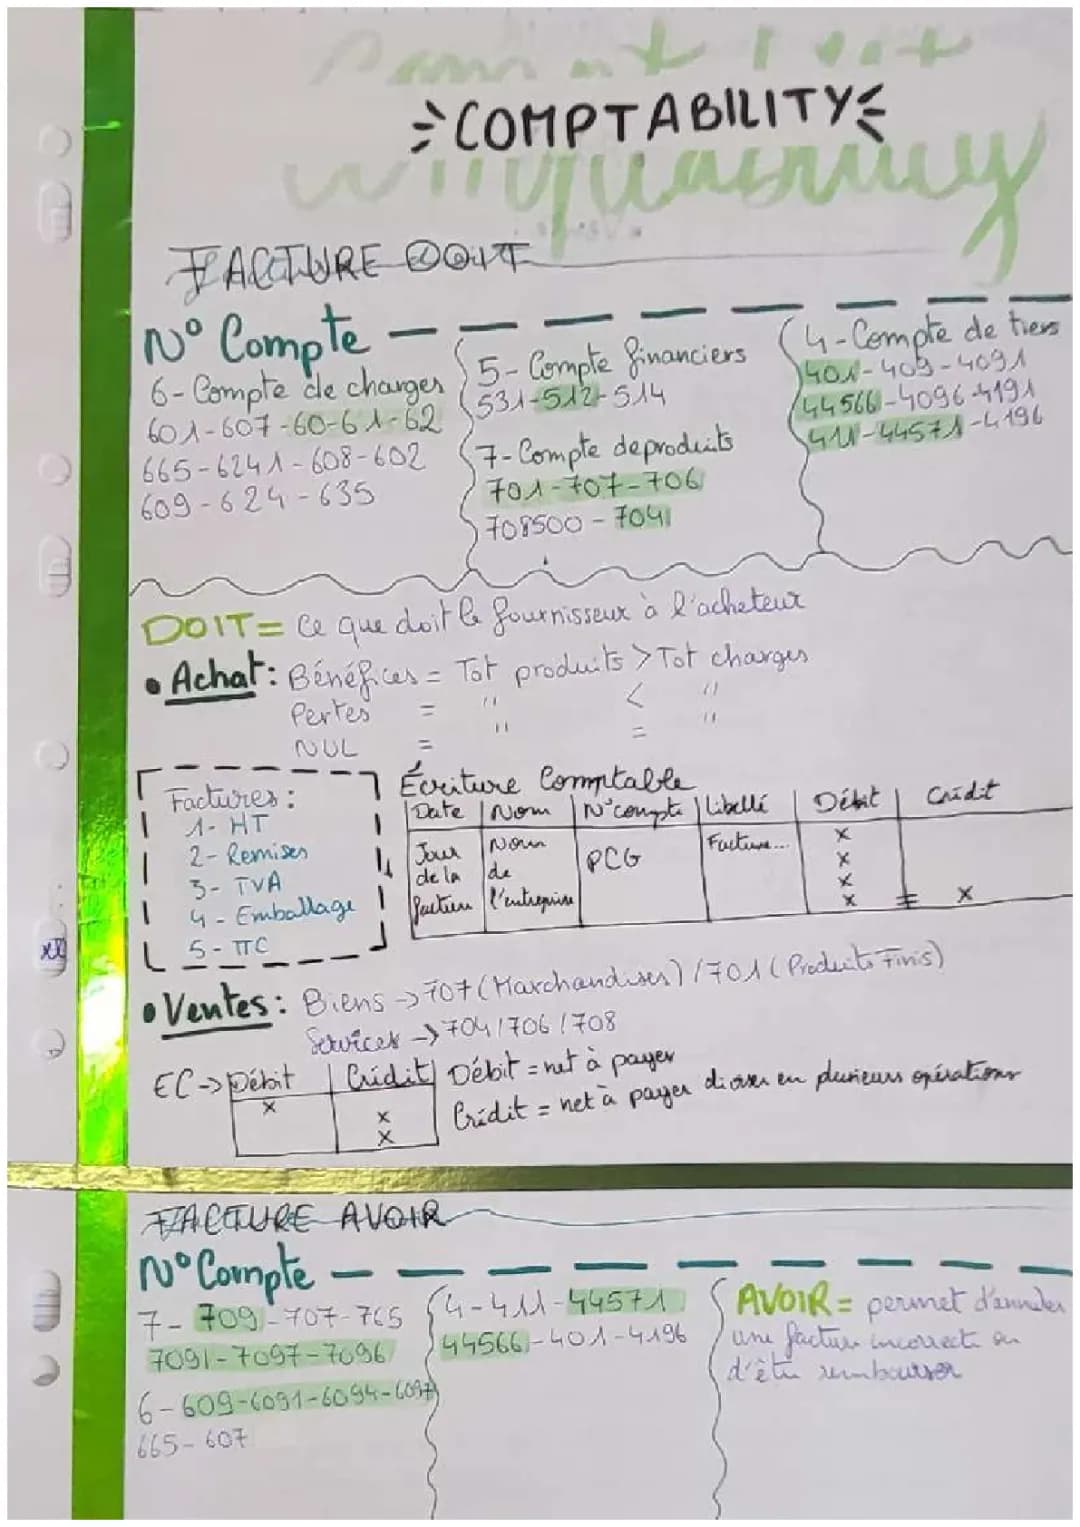 COMPTABILITY
FACTURE DOIT
N° Compte
6-Compte de charges
601-607-60-61-62
665-6241-608-602
609-624-635
5-Compte financiers
531-512-514
7-Compte de produits
701-707-706
708500-7041
4-Compte de tiers
401-409-4091
44566-4096-4191
411-44571-4196
DOIT= Ce que doit le fournisseur à l'acheteur
• Achat: Bénéfices = Tot produits > Tot charges
Pertes = " < "
NUL = " = "
Factures:
1- HT
2- Remises
3- TVA
4- Emballage
5- TTC
Écriture Comptable
Date | Nom | N°compte | Libellé | Débit | Crédit
Jour de la facture | Nom de l'entreprise | PCG | Facture... | x x x x = | x
• Ventes: Biens -> 707 (Marchandises) / 701 (Produits Finis)
Services -> 704 / 706 / 708
EC-> Débit | Crédit
x
x
x
Débit = net à payer
Crédit = net à payer en plusieurs opérations
FACTURE AVOIR
N° Compte
7- 709-707-765
7091-7097-7096
6-609-6091-6094-6097
665-607
4-411-44571
44566-401-4196
AVOIR= permet d'annuler
une facture incorrecte ou
d'être rembourser